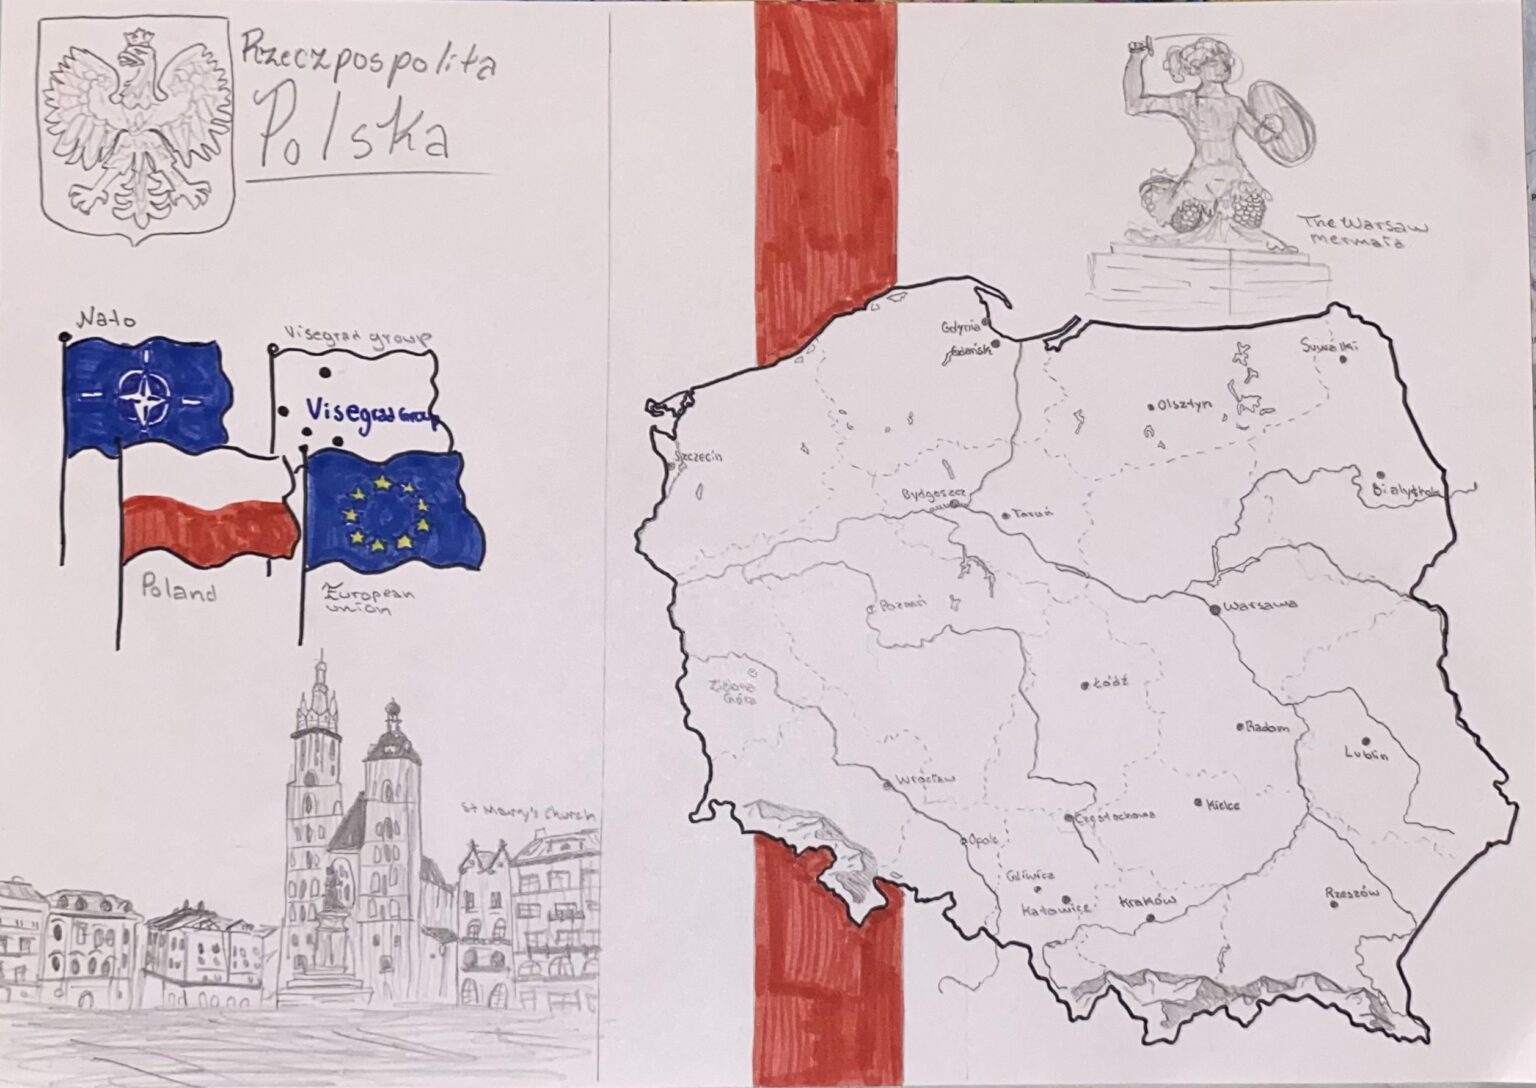 Rzeczpospolita
Polska
Nato
Visegrad group
Visegrad Group
Poland
European
union
St Marry's Church
The Warsaw
mermaid
Gdynia
Gdańsk
Suwałki
Olsztyn
Szczecin
Białystok
Bydgoszcz
Toruń
Poznań
Warszawa
Zielona
Góra
Łódź
Radom
Lublin
Wrocław
Kielce
Częstochowa
Opole
Gliwice
Katowice
Kraków
Rzeszów